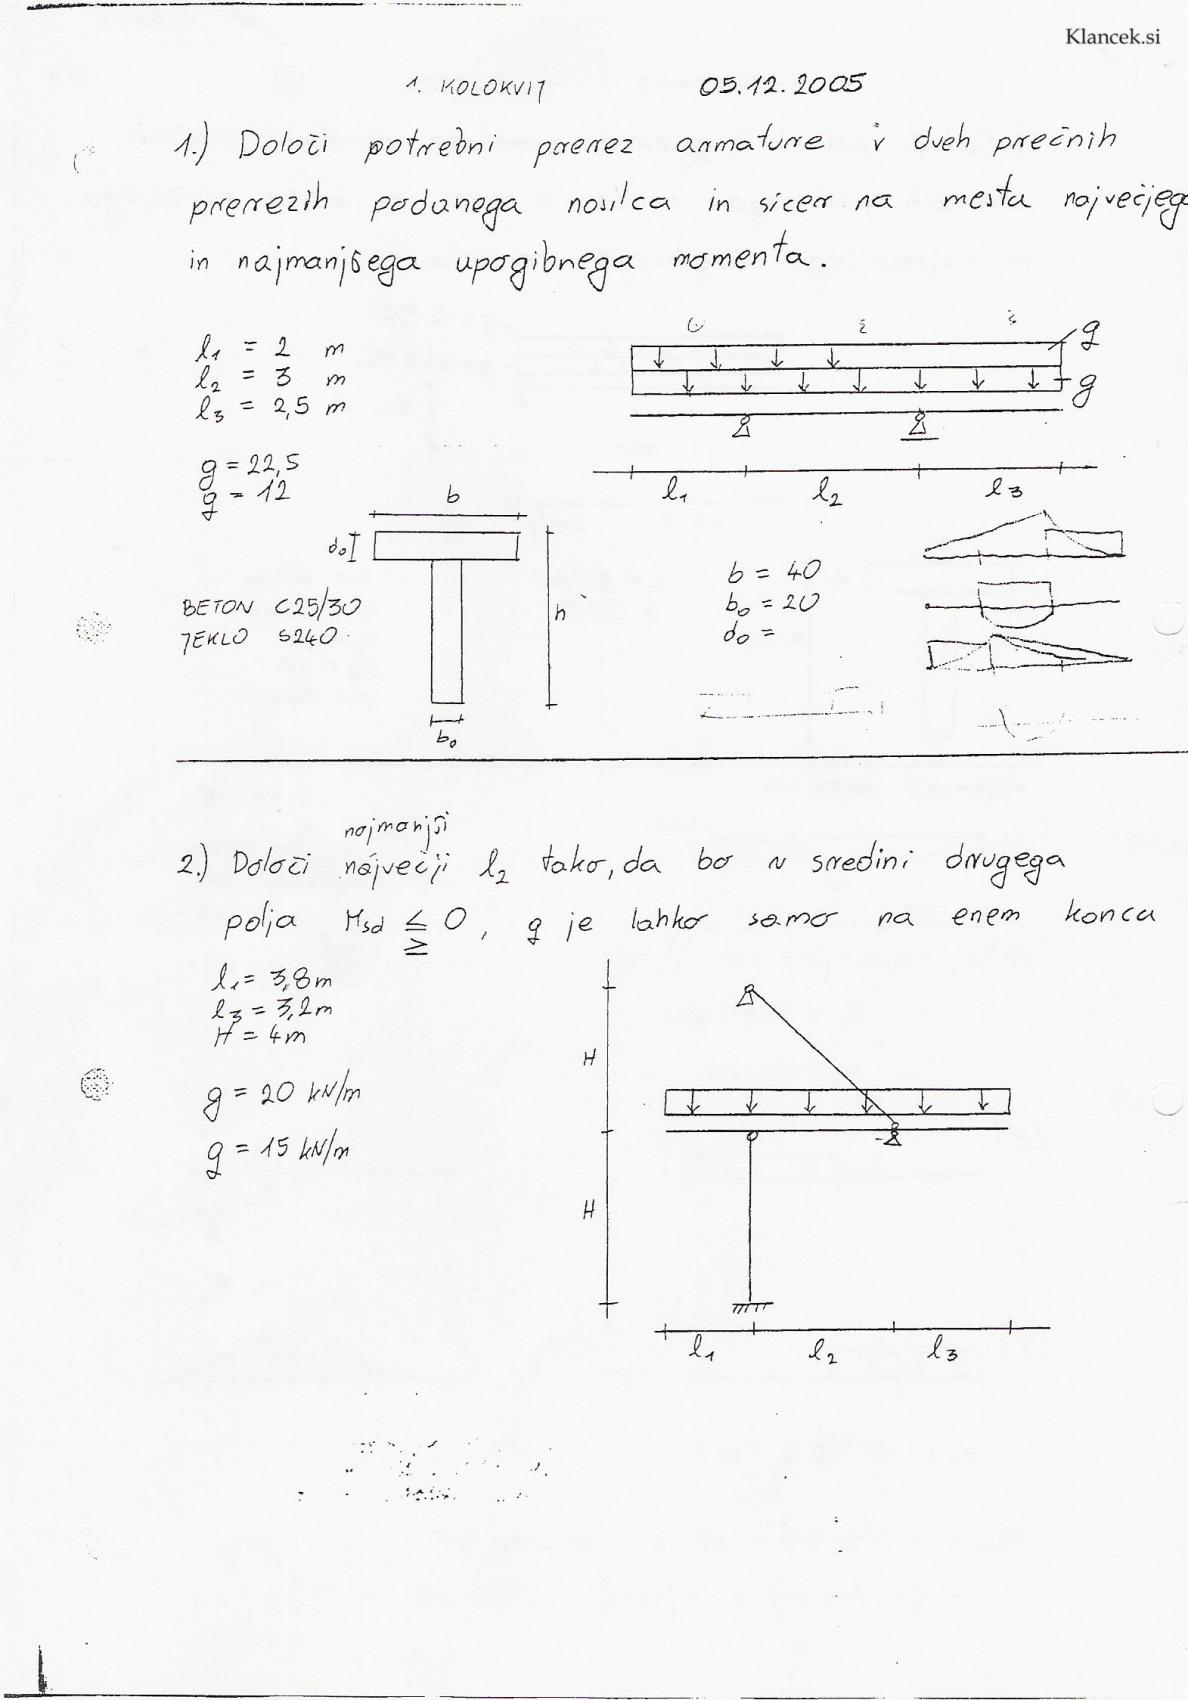 Klancek.si
1. KOLOKVIJ 05.12.2005
1.) Določi potrebni prerez armature v dveh prečnih
prerezih podanega nosilca in sicer na mesta največjega
in najmanjšega upogibnega momenta.
l1 = 2 m
l2 = 3 m
l3 = 2,5 m
g = 22,5
q = 12
q
g
l1 l2 l3
b
d0
h
b0
BETON C25/30
JEKLO S240
b = 40
b0 = 20
d0 =
najmanjši
2.) Določi največji l2 tako, da bo v sredini drugega
polja Msd ≤ 0, q je lahko samo na enem koncu
≥
l1 = 3,8m
l3 = 3,2m
H = 4m
g = 20 kN/m
q = 15 kN/m
H
H
l1 l2 l3